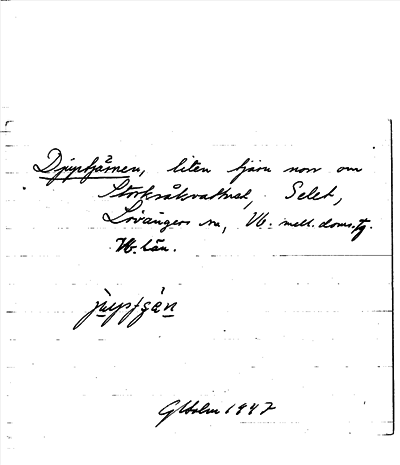 Djuptjärnen, liten tjärn norr om
Storkråkvattnet, Selet,
Lövångers sn, Vb. mell. doms. tg.
Vb. län.
GHolm 1947